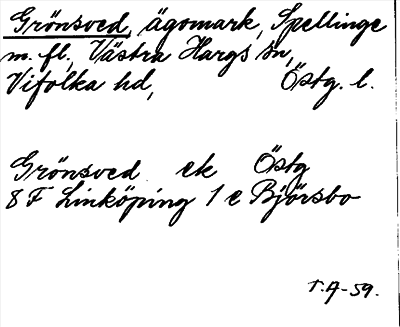 Grönsved, ägomark, Spellinge
m. fl., Västra Hargs sn,
Vifolka hd, Östg. l.
Grönsved ek Östg
8 F Linköping 1 e Björsbo
T.A-59.